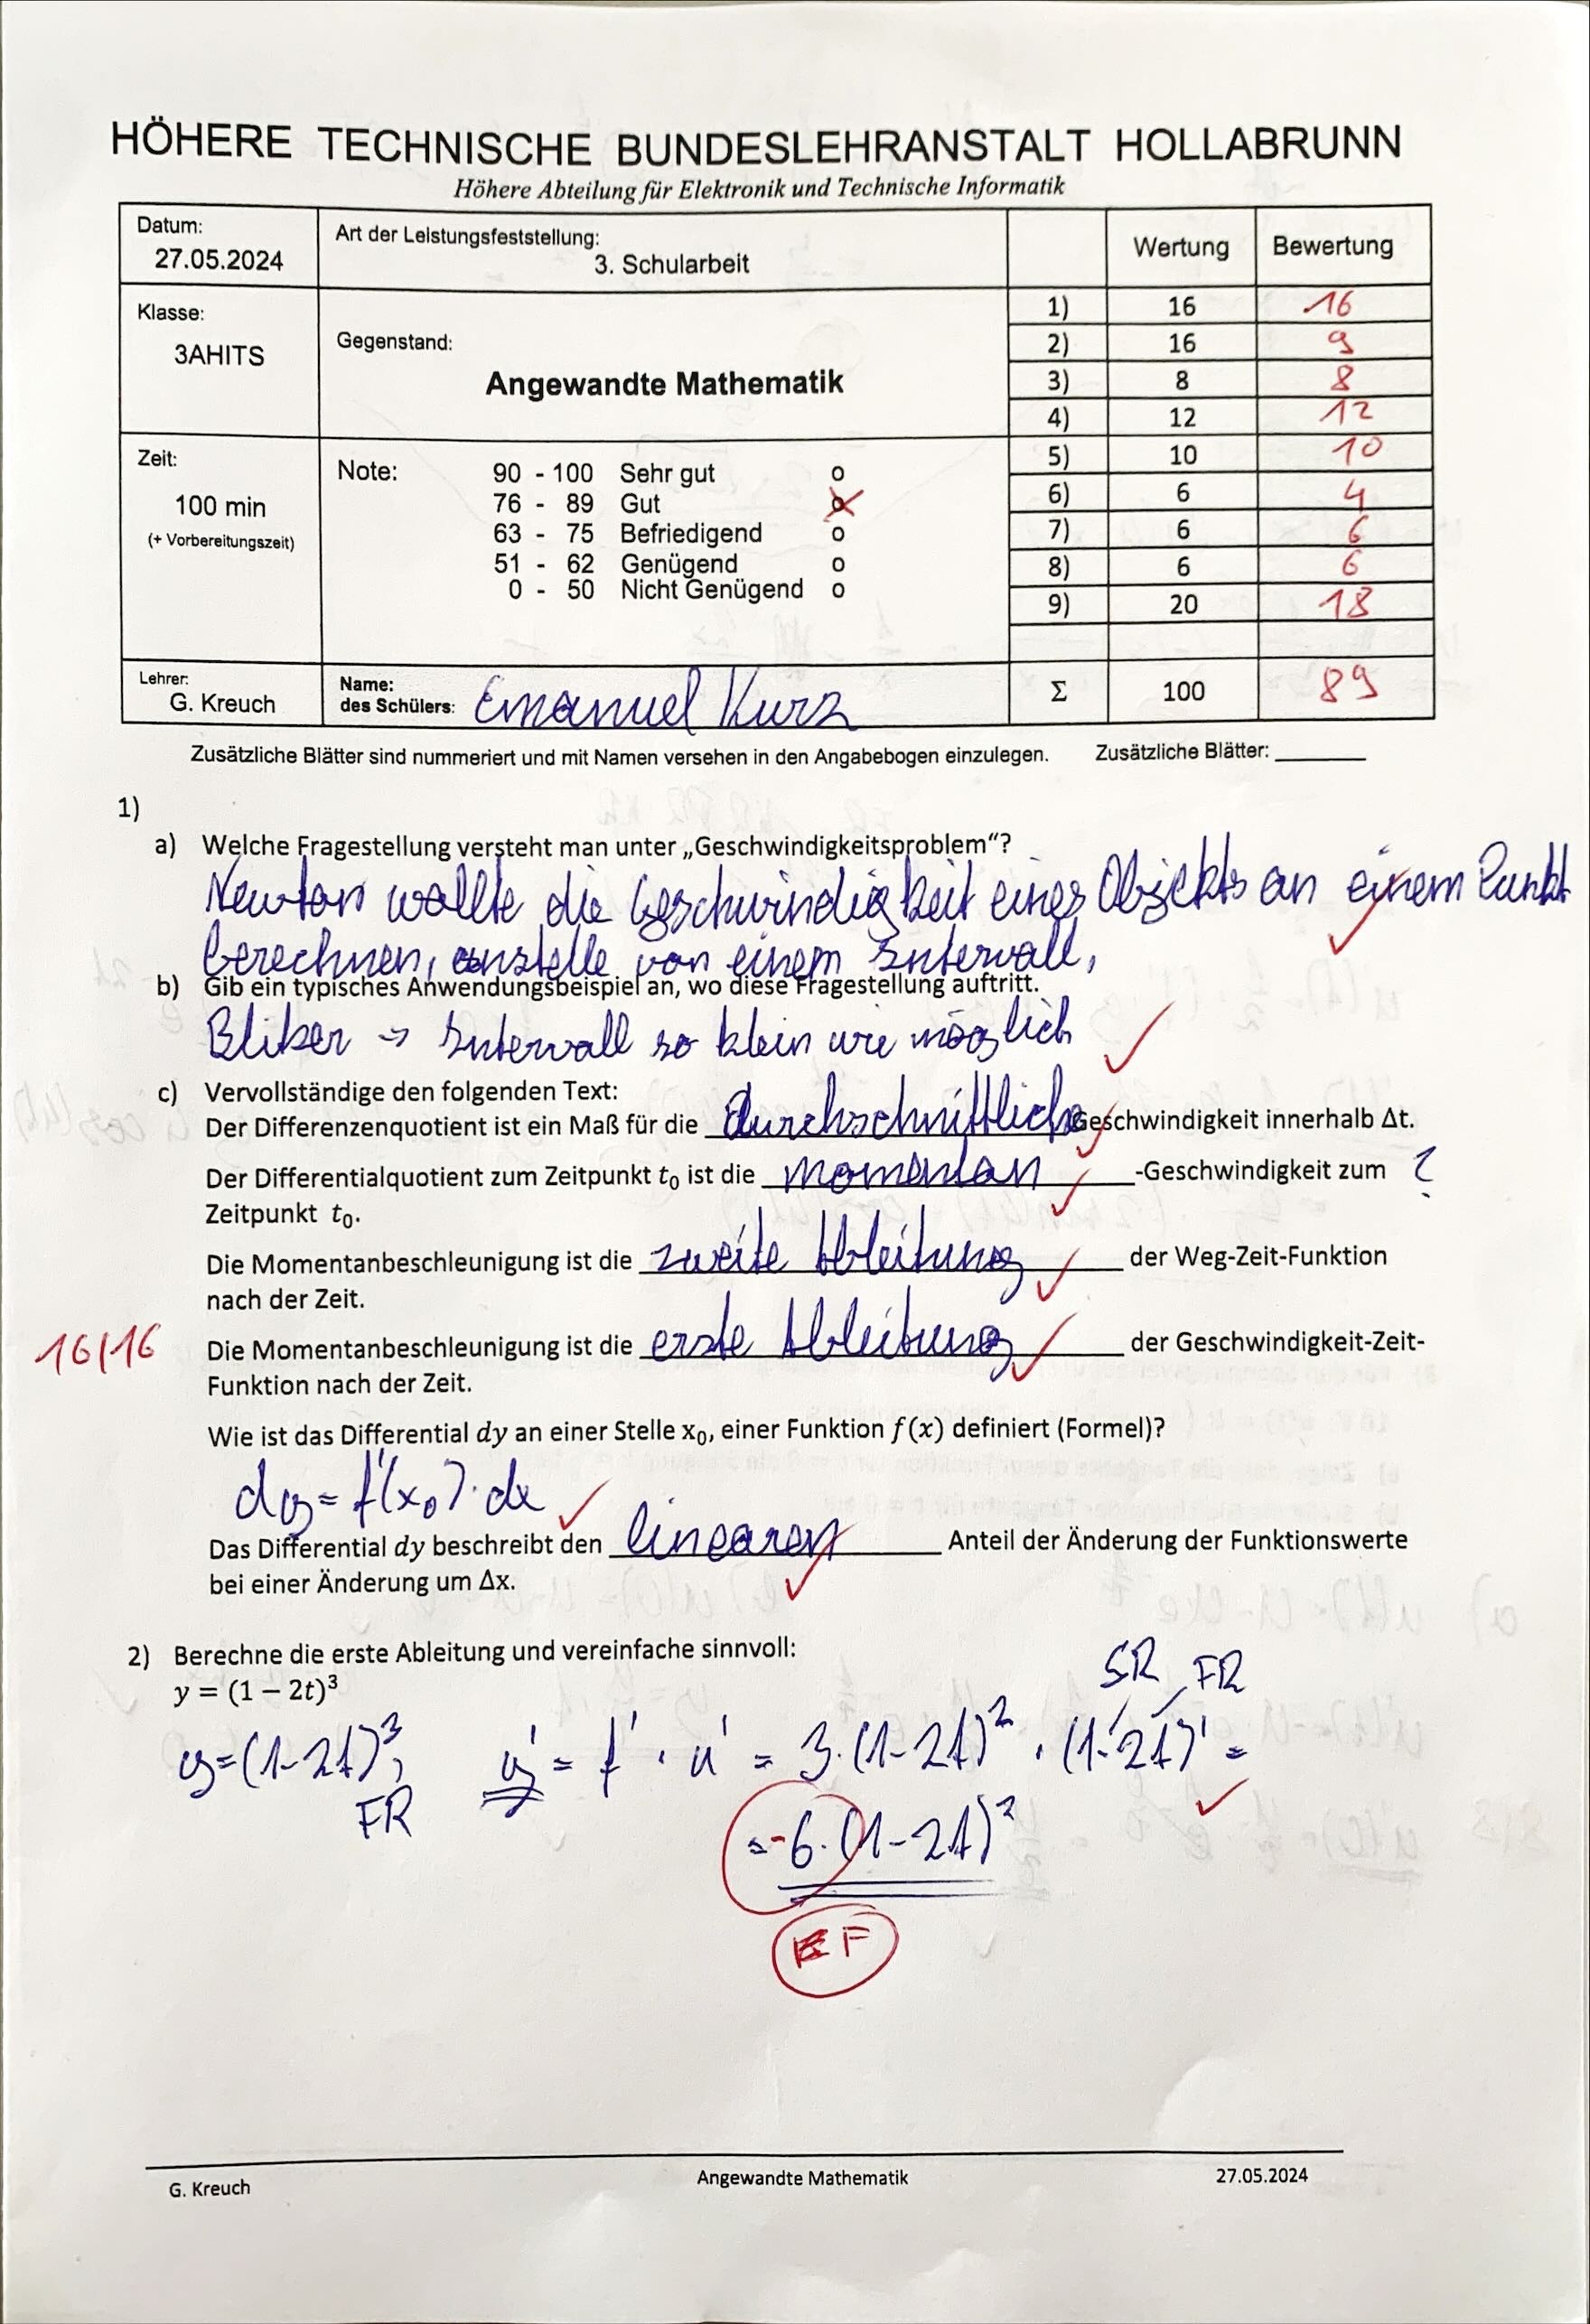 HÖHERE TECHNISCHE BUNDESLEHRANSTALT HOLLABRUNN
Höhere Abteilung für Elektronik und Technische Informatik
Datum:
27.05.2024
Art der Leistungsfeststellung:
3. Schularbeit
Wertung Bewertung
Klasse:
3AHITS
Gegenstand:
Angewandte Mathematik
1) 16 16
2) 16 9
3) 8 8
4) 12 12
5) 10 10
6) 6 4
7) 6 6
8) 6 6
9) 20 18
Zeit:
100 min
(+ Vorbereitungszeit)
Note:
90 - 100 Sehr gut o
76 - 89 Gut o
63 - 75 Befriedigend o
51 - 62 Genügend o
0 - 50 Nicht Genügend o
Lehrer:
G. Kreuch
Name:
des Schülers: Emanuel Kurz
Σ 100 89
Zusätzliche Blätter sind nummeriert und mit Namen versehen in den Angabebogen einzulegen. Zusätzliche Blätter: ______
1)
a) Welche Fragestellung versteht man unter „Geschwindigkeitsproblem“?
Newton wollte die Geschwindigkeit eines Objekts an einem Punkt
berechnen, anstelle von einem Intervall,
b) Gib ein typisches Anwendungsbeispiel an, wo diese Fragestellung auftritt.
Blitzer → Intervall so klein wie möglich
c) Vervollständige den folgenden Text:
Der Differenzenquotient ist ein Maß für die durchschnittliche Geschwindigkeit innerhalb Δt.
Der Differentialquotient zum Zeitpunkt t₀ ist die momentan -Geschwindigkeit zum ?
Zeitpunkt t₀.
Die Momentanbeschleunigung ist die zweite Ableitung der Weg-Zeit-Funktion
nach der Zeit.
16/16
Die Momentanbeschleunigung ist die erste Ableitung der Geschwindigkeit-Zeit-
Funktion nach der Zeit.
Wie ist das Differential dy an einer Stelle x₀, einer Funktion f(x) definiert (Formel)?
dy = f'(x₀) · dx
Das Differential dy beschreibt den linearen Anteil der Änderung der Funktionswerte
bei einer Änderung um Δx.
2) Berechne die erste Ableitung und vereinfache sinnvoll:
y = (1 – 2t)³
SR FR
y=(1-2t)³, y' = f' · u' = 3·(1-2t)² · (1-2t)' =
FR
= -6·(1-2t)²
F
G. Kreuch Angewandte Mathematik 27.05.2024